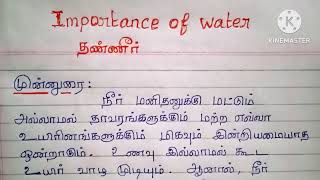 Importance of water
தண்ணீர்
KINEMASTER
முன்னுரை:
நீர் மனிதனுக்கு மட்டும்
அல்லாமல் தாவரங்களுக்கும் மற்ற எல்லா
உயிரினங்களுக்கும் மிகவும் இன்றியமையாத
ஒன்றாகும். உணவு இல்லாமல் கூட
உயிர் வாழ முடியும். ஆனால், நீர்